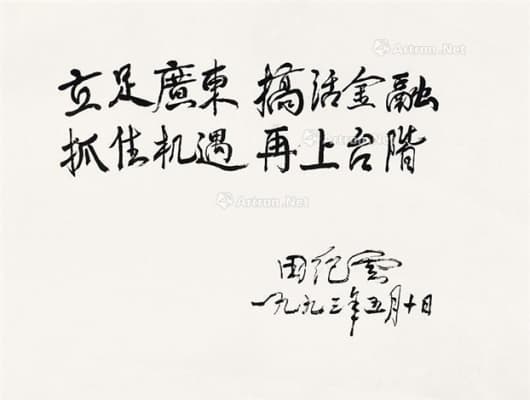 立足廣東 搞活金融
抓住机遇 再上台階
田纪雲
一九九三年五月十日
Artron.Net
Artron.Net
Artron.Net
Artron.Net